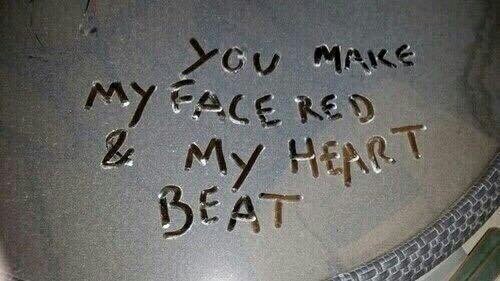 YOU MAKE
MY FACE RED
& MY HEART
BEAT